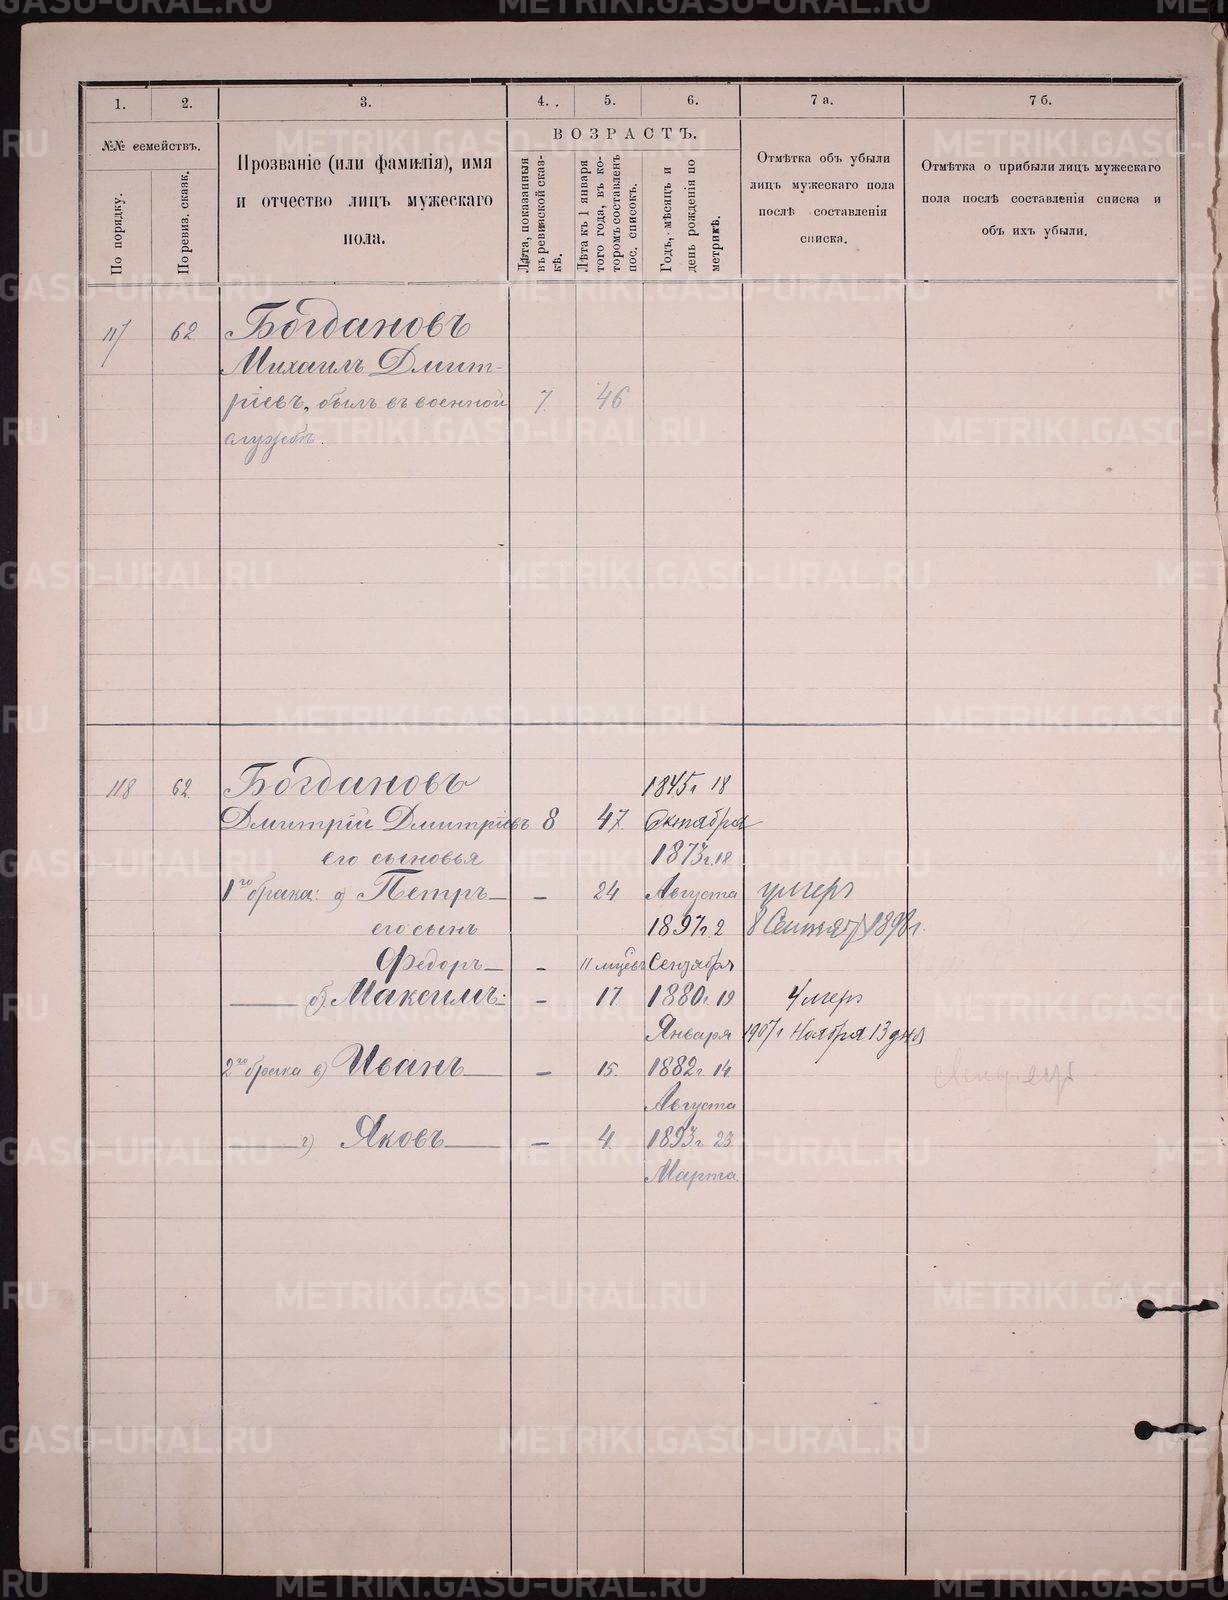 1. 2. 3. 4. 5. 6. 7 а. 7 б.
№№ семействъ.
По порядку.
По ревиз. сказк.
Прозваніе (или фамилія), имя
и отчество лицъ мужескаго
пола.
ВОЗРАСТЪ.
Лѣта, показанныя
въ ревизской сказ-
кѣ.
Лѣта къ 1 января
того года, въ ко-
торомъ составленъ
пос. списокъ.
Годъ, мѣсяцъ и
день рожденія по
метрикѣ.
Отмѣтка объ убыли
лицъ мужескаго пола
послѣ составленія
списка.
Отмѣтка о прибыли лицъ мужескаго
пола послѣ составленія списка и
объ ихъ убыли.
117 62 Богдановъ
Михаилъ Дмит-
ріевъ, былъ въ военной 7 46
службѣ.
118 62 Богдановъ 1845г 18
Дмитрій Дмитріевъ 8 47 Октября
его сыновья 1873г. 18
1го брака: а) Петръ — 24 Августа умеръ
его сынъ 1897г. 2 8 Сентяб 1898г.
Федоръ — 11 мцевъ Сентября
б) Максимъ: — 17 1880г. 19 Умеръ
Января 1907г Ноября 13 дня
2го брака в) Иванъ — 15. 1882г. 14
Августа
г) Яковъ — 4. 1893г. 23
Марта
METRIKI.GASO-URAL.RU